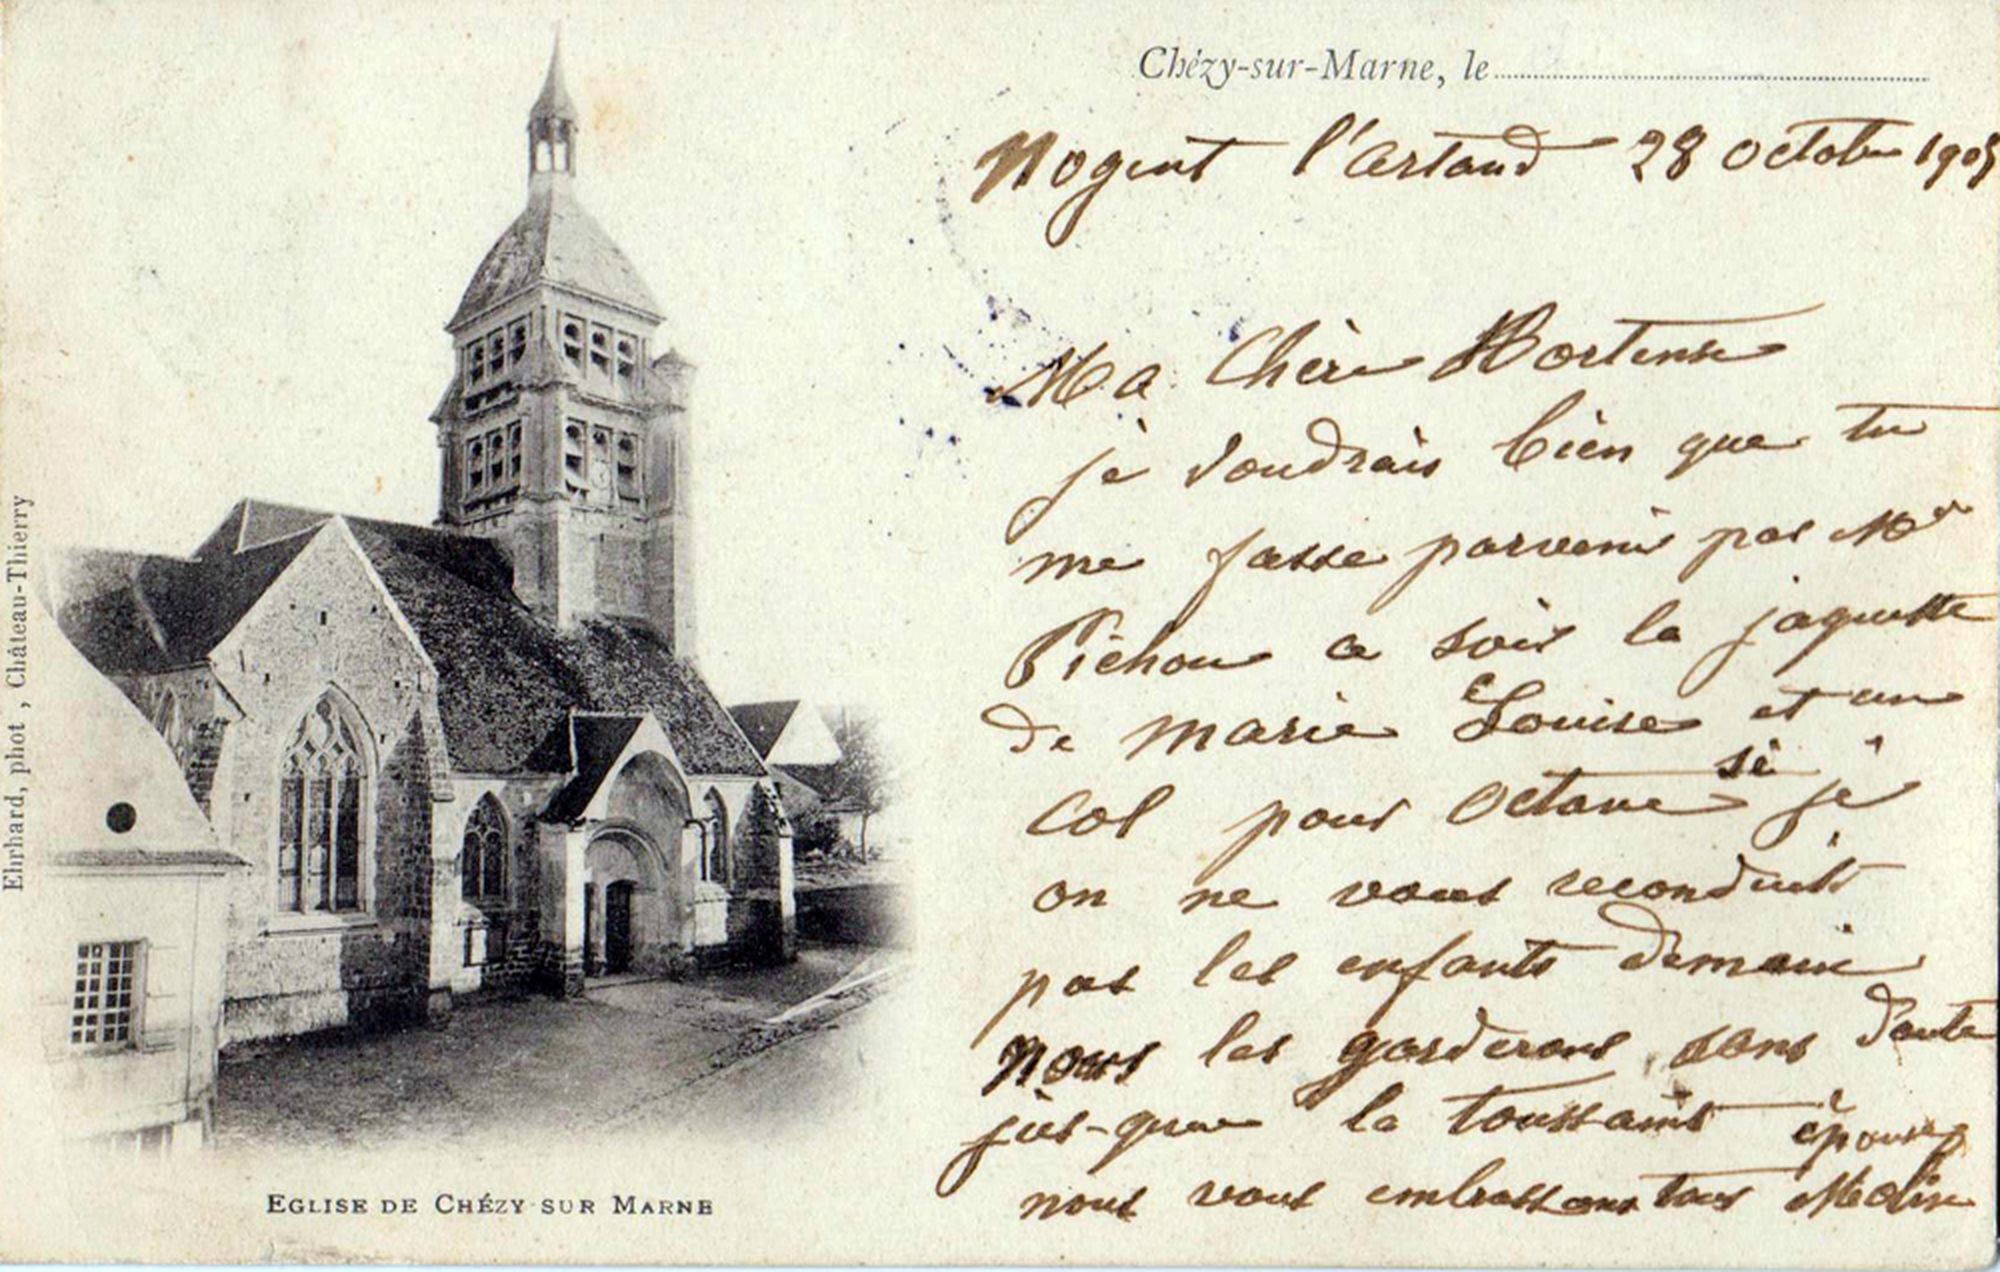 Chézy-sur-Marne, le
Nogent l'artaud 28 octobre
Ma Chère Hortense
je voudrais bien que tu
me fasse parvenir par Mr
Pichon ce soir la jaquette
de marie Louise et un
col pour Octave si je
on ne vous reconduit
pas les enfants demain
nous les garderons sans doute
jus-que la toussaint épouse
nous vous embrassons tous
EGLISE DE CHÉZY-SUR MARNE
Ehrhard, phot, Château-Thierry